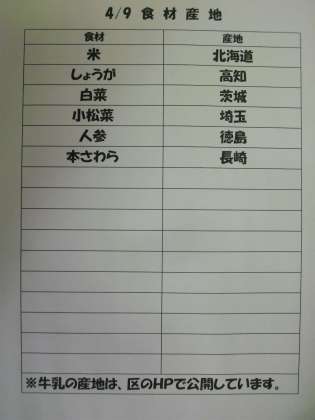 4/9 食材産地
食材 産地
米 北海道
しょうが 高知
白菜 茨城
小松菜 埼玉
人参 徳島
本さわら 長崎
※牛乳の産地は、区のHPで公開しています。